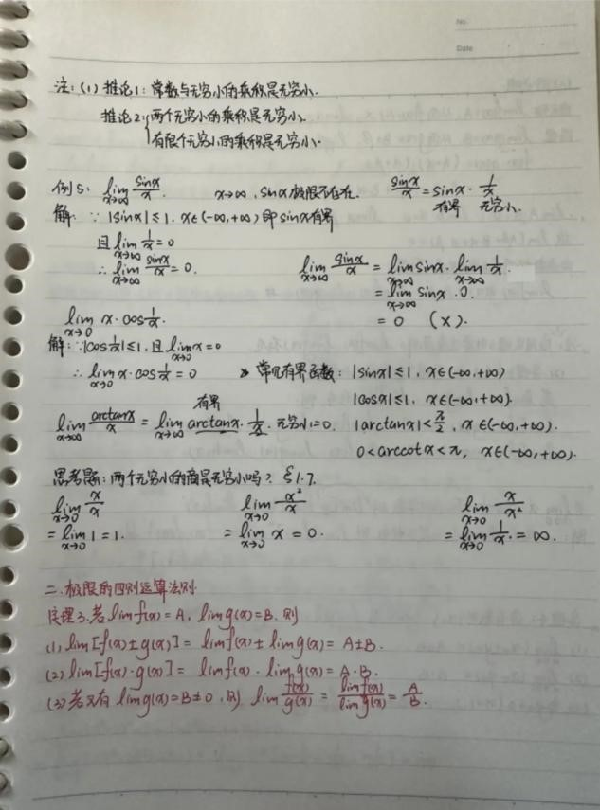 No.
Date
注:(1) 推论1: 常数与无穷小的乘积是无穷小.
推论2: 两个无穷小的乘积是无穷小.
有限个无穷小的乘积是无穷小.
例5: lim x→∞ sinx/x. x→∞, sinx极限不存在. sinx/x = sinx · 1/x
有界 无穷小.
解: ∵ |sinx| ≤ 1, x∈(-∞,+∞) 即 sinx有界
且 lim x→∞ 1/x = 0
∴ lim x→∞ sinx/x = 0. lim x→∞ sinx/x = lim x→∞ sinx · lim x→∞ 1/x.
= lim x→∞ sinx · 0.
lim x→0 x·cos 1/x. = 0 (×).
解: ∵ |cos 1/x| ≤ 1, 且 lim x→0 x = 0
∴ lim x→0 x·cos 1/x = 0 常见有界函数: |sinx| ≤ 1, x∈(-∞,+∞)
有界 |cosx| ≤ 1, x∈(-∞,+∞).
lim x→∞ arctanx/x = lim x→∞ arctanx · 1/x. 无穷小=0. |arctanx| < π/2, x∈(-∞,+∞).
0 < arccotx < π, x∈(-∞,+∞).
思考题: 两个无穷小的商是无穷小吗? §1.7.
lim x→0 x/x lim x→0 x²/x lim x→0 x/x²
= lim x→0 1 = 1. = lim x→0 x = 0. = lim x→0 1/x = ∞.
二. 极限的四则运算法则
定理3. 若 lim f(x) = A, lim g(x) = B, 则
(1) lim [f(x) ± g(x)] = lim f(x) ± lim g(x) = A ± B.
(2) lim [f(x) · g(x)] = lim f(x) · lim g(x) = A · B.
(3) 若又有 lim g(x) = B ≠ 0, 则 lim f(x)/g(x) = lim f(x)/lim g(x) = A/B.